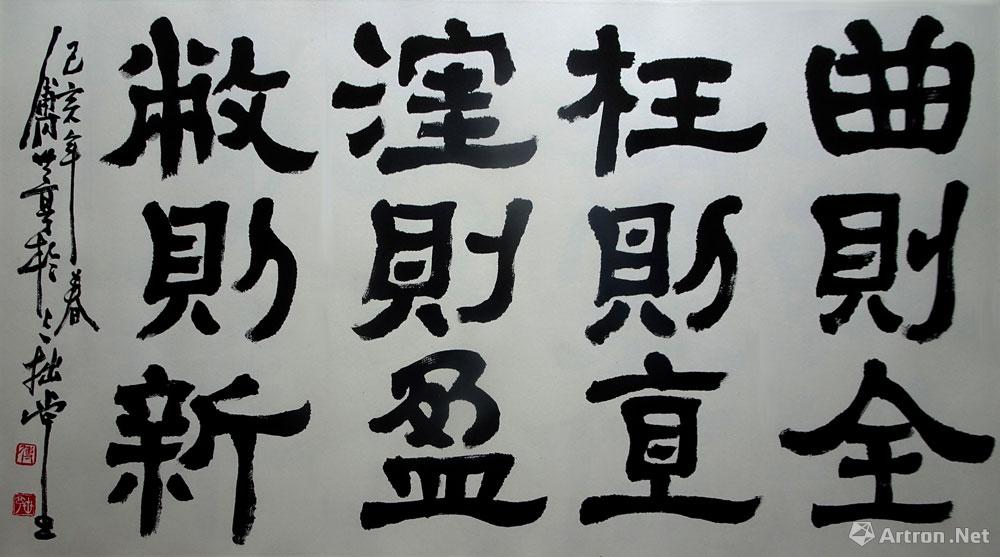 曲則全
枉則直
漥則盈
敝則新
己亥年春
傅 於 拙堂
Artron.Net